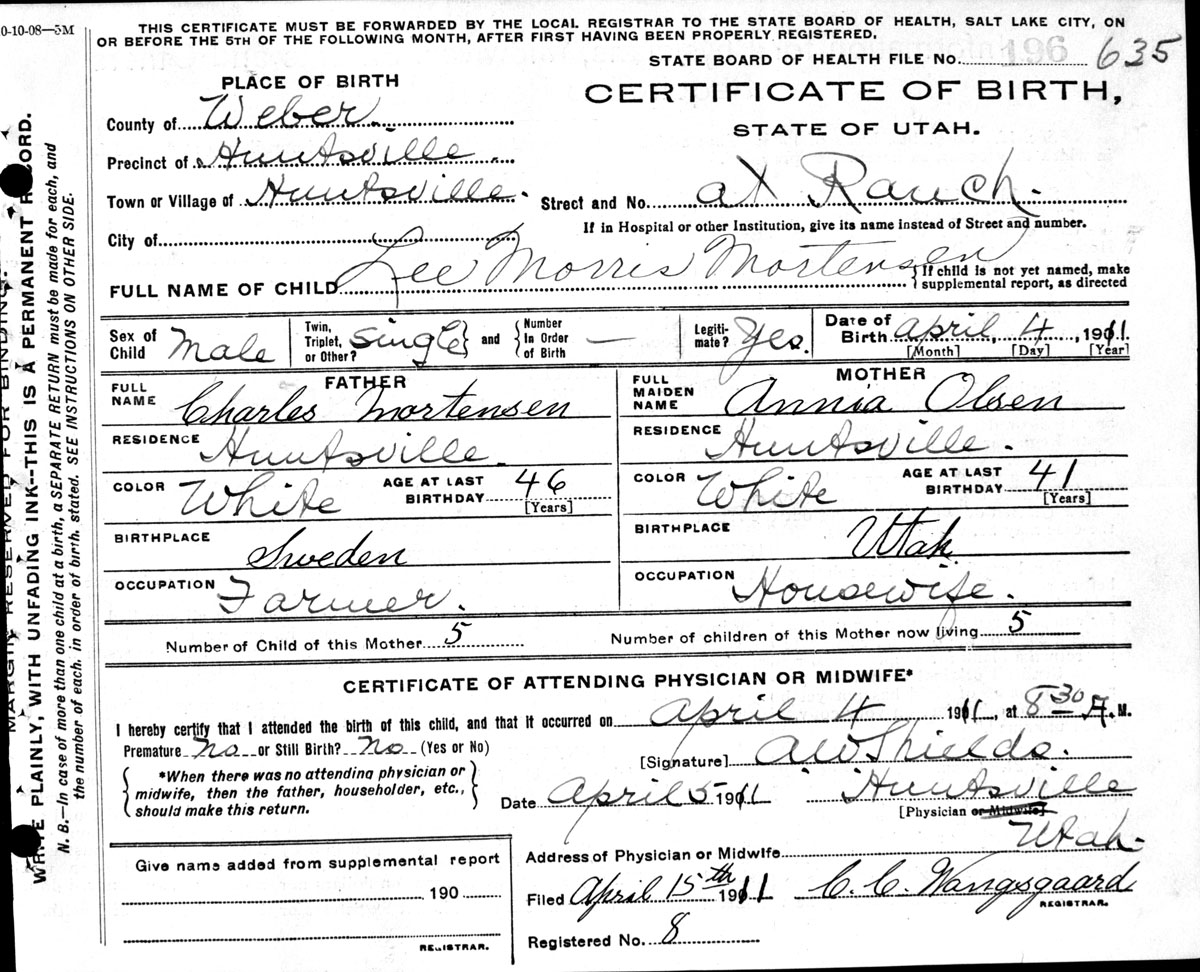 0-10-08—5M
THIS CERTIFICATE MUST BE FORWARDED BY THE LOCAL REGISTRAR TO THE STATE BOARD OF HEALTH, SALT LAKE CITY, ON
OR BEFORE THE 5TH OF THE FOLLOWING MONTH, AFTER FIRST HAVING BEEN PROPERLY REGISTERED.
STATE BOARD OF HEALTH FILE No. 196 635
PLACE OF BIRTH
CERTIFICATE OF BIRTH,
STATE OF UTAH.
County of Weber.
Precinct of Huntsville.
Town or Village of Huntsville.
Street and No. at Ranch.
If in Hospital or other Institution, give its name instead of Street and number.
City of
FULL NAME OF CHILD Lee Morris Mortensen
If child is not yet named, make
supplemental report, as directed
Sex of Child Male
Twin, Triplet, or Other? Single and Number In Order of Birth —
Legitimate? Yes.
Date of Birth April 4, 1911
[Month] [Day] [Year]
FATHER
FULL NAME Charles Mortensen
RESIDENCE Huntsville.
COLOR White AGE AT LAST BIRTHDAY 46
[Years]
BIRTHPLACE Sweden
OCCUPATION Farmer.
MOTHER
FULL MAIDEN NAME Annia Olsen
RESIDENCE Huntsville.
COLOR White AGE AT LAST BIRTHDAY 41
[Years]
BIRTHPLACE Utah
OCCUPATION Housewife.
Number of Child of this Mother 5 Number of children of this Mother now living 5
CERTIFICATE OF ATTENDING PHYSICIAN OR MIDWIFE*
I hereby certify that I attended the birth of this child, and that it occurred on April 4 1911, at 8 30 A. M.
Premature no or Still Birth? No (Yes or No)
[Signature] AW Shields.
*When there was no attending physician or
midwife, then the father, householder, etc.,
should make this return.
Date April 5 1911 Huntsville
[Physician or Midwife]
Utah.
Address of Physician or Midwife
Give name added from supplemental report
190
REGISTRAR.
Filed April 15th 1911 C. C. Wangsgaard
REGISTRAR.
Registered No. 8
MARGIN RESERVED FOR BINDING.
WRITE PLAINLY, WITH UNFADING INK--THIS IS A PERMANENT RECORD.
N. B.—In case of more than one child at a birth, a SEPARATE RETURN must be made for each, and
the number of each, in order of birth, stated. SEE INSTRUCTIONS ON OTHER SIDE.